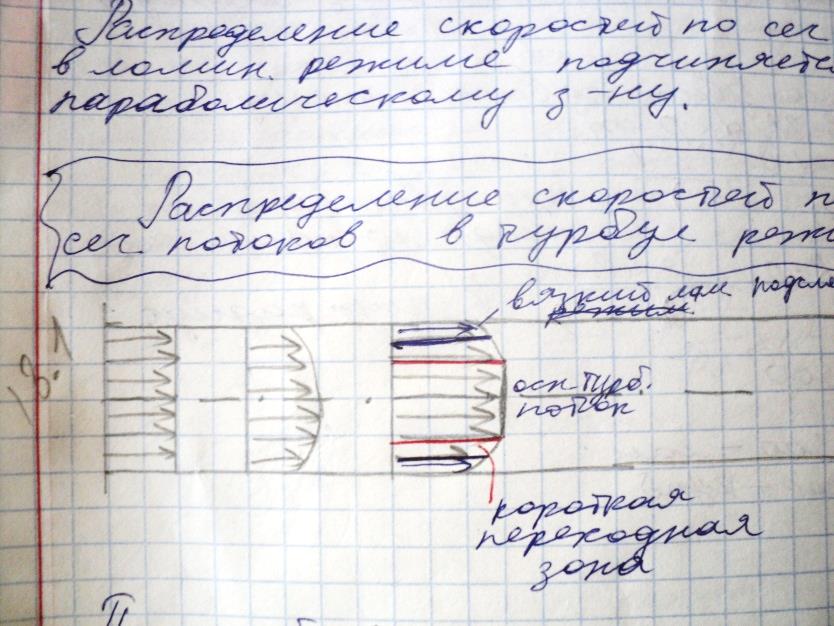 Распределение скоростей по сег
в ломин. режиме подчиняетс
параболическому з-ну.
Распределение скоростей п
сег. потоков в турбул режи
вязкий лам подсло
режим
13.1
осн. турб.
поток
короткая
переходная
зона
П